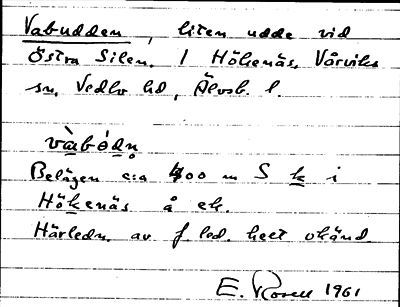 Vabudden, liten udde vid
Östra Silen. I Hökenäs, Vårviks
sn, Vedbo hd, Älvsb. l.
vàbód̥n̥
Belägen c:a 400 m S k i
Hökenäs å ek.
Härledn. av f. led. helt okänd
E. Rosell 1961